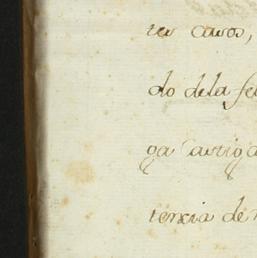 res casos,
do dela fe
ga antiga
tencia de